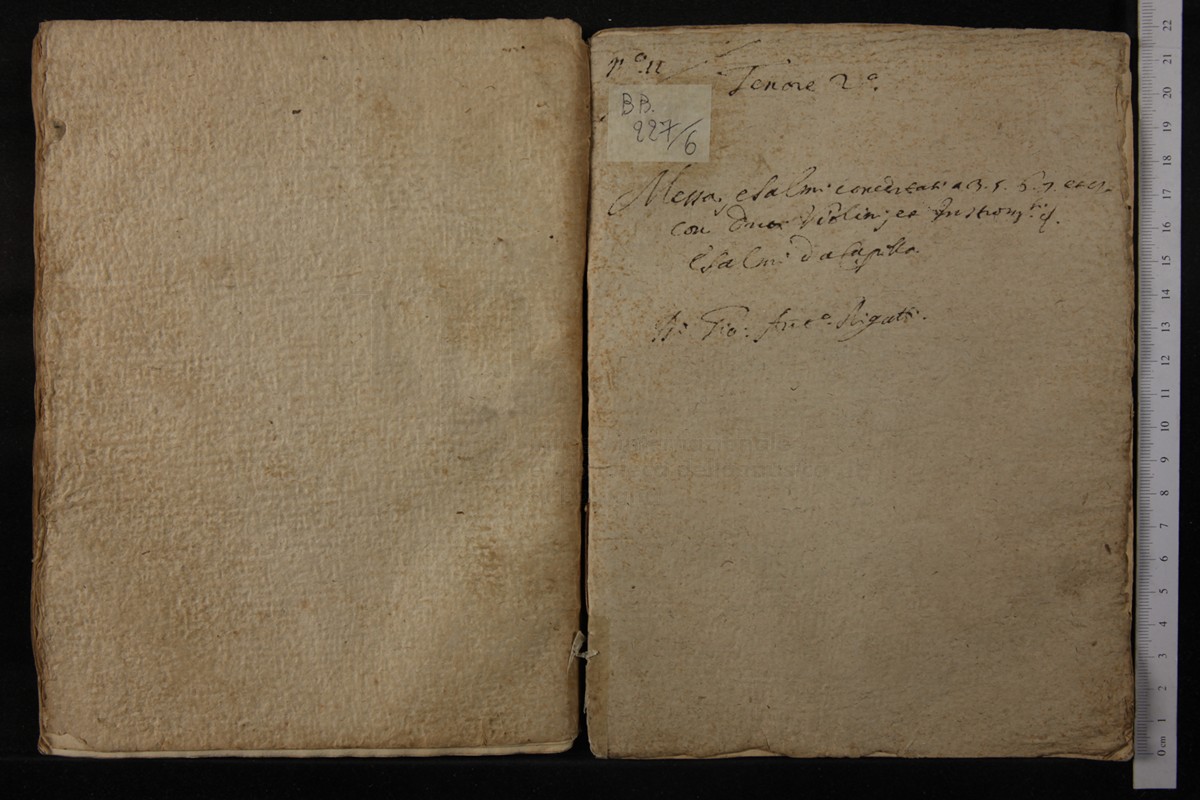 Tenore 2º.
BB.
227/6
Messa, e Salmi concertati a 3. 5. 6. 7. et 8.
con due Violini, et Instromti. 4.
e Salmi da Capella.
Di Gio: Francº. Rigatti.
22
21
20
19
18
17
16
15
14
13
12
11
10
9
8
7
6
5
4
3
2
1
0 cm